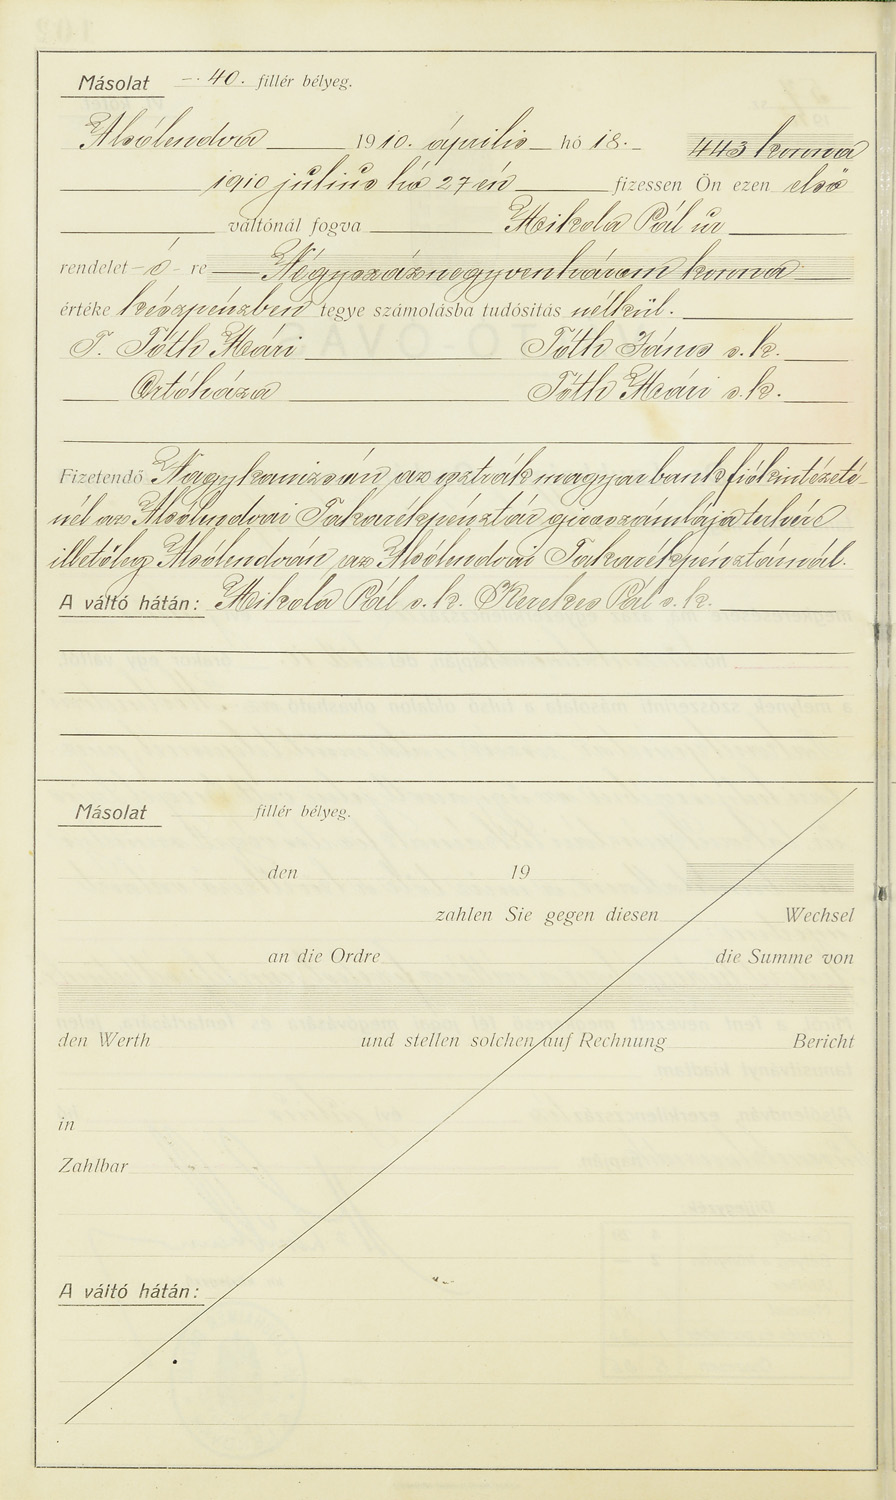 Másolat —. 40. fillér bélyeg.
Alsólendva 1910. április hó 18. 443 korona
1910 július hó 27 én fizessen Ön ezen első
váltónál fogva Mikola Pál úr
rendelet - ő - re Négyszáznegyvenhárom korona
értéke készpénzben tegye számolásba tudósitás nélkül.
T. Tóth Mári Tóth János s. k.
Ortóháza Tóth Mári s. k.
Fizetendő Nagykanizsán az osztrák magyar bank fiókintézeté-
nél az Alsólendvai Takarékpénztár giroszámlája terhére
illetőleg Alsólendván az Alsólendvai Takarékpénztárnál.
A váltó hátán: Mikola Pál s. k. Kerekes Pál s. k.
Másolat fillér bélyeg.
den 19
zahlen Sie gegen diesen Wechsel
an die Ordre die Summe von
den Werth und stellen solchen auf Rechnung Bericht
in
Zahlbar
A váltó hátán: